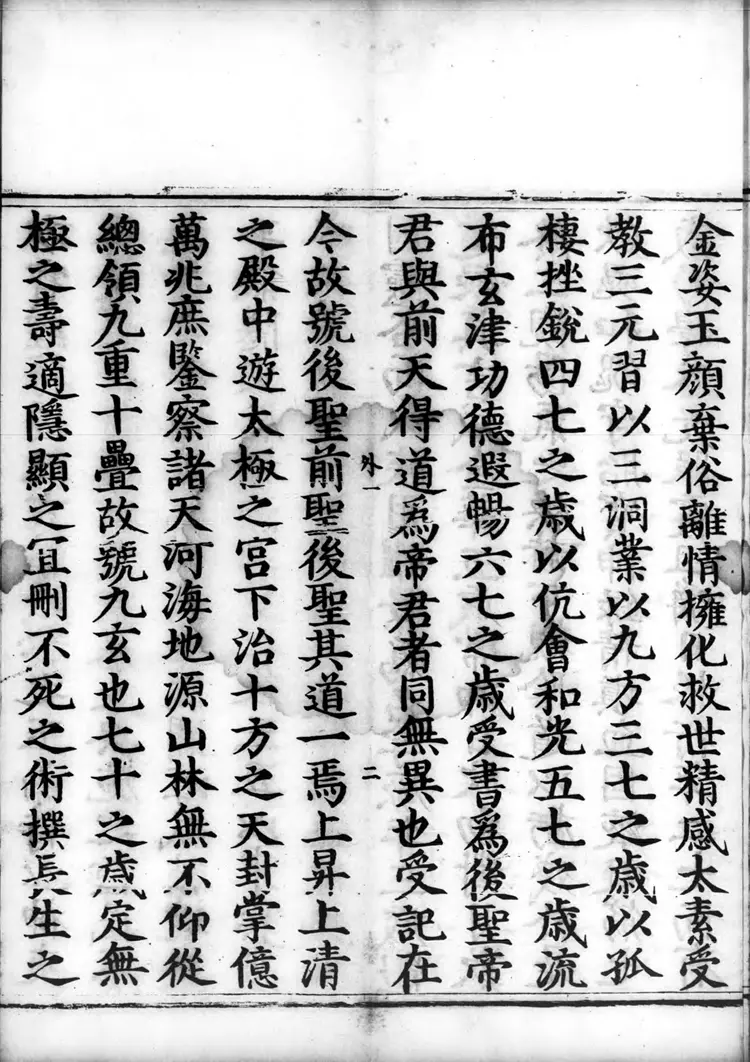 金姿玉顏棄俗離情擁化救世精感太素受
教三元習以三洞業以九方三七之歲以孤
棲挫銳四七之歲以伉會和光五七之歲流
布玄津功德遐暢六七之歲受書為後聖帝
君與前天得道為帝君者同無異也受記在
外一
二
今故號後聖前聖後聖其道一焉上昇上清
之殿中遊太極之宮下治十方之天封掌億
萬兆庶鑒察諸天河海地源山林無不仰從
總領九重十疊故號九玄也七十之歲定無
極之壽適隱顯之宜刪不死之術撰長生之